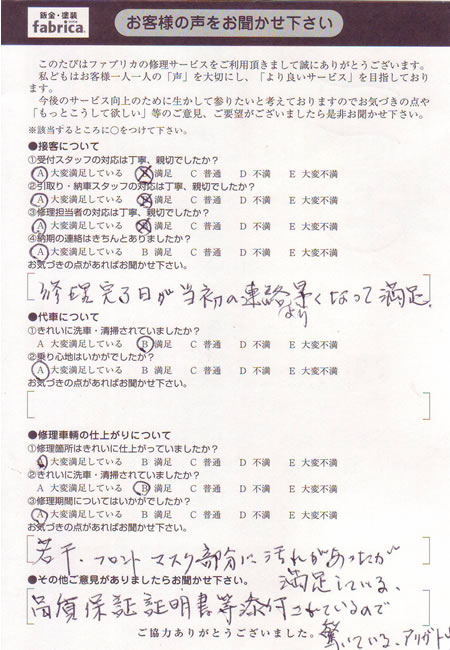 鈑金・塗装
fabrica.
お客様の声をお聞かせ下さい
このたびはファブリカの修理サービスをご利用頂きまして誠にありがとうございます。
私どもはお客様一人一人の「声」を大切にし、「より良いサービス」を目指しており
ます。
今後のサービス向上のために生かして参りたいと考えておりますのでお気づきの点や
「もっとこうして欲しい」等のご意見、ご要望がございましたら是非お聞かせ下さい。
※該当するところに○をつけて下さい。
●接客について
①受付スタッフの対応は丁寧、親切でしたか?
A 大変満足している B 満足 C 普通 D 不満 E 大変不満
②引取り・納車スタッフの対応は丁寧、親切でしたか?
A 大変満足している B 満足 C 普通 D 不満 E 大変不満
③修理担当者の対応は丁寧、親切でしたか?
A 大変満足している B 満足 C 普通 D 不満 E 大変不満
④納期の連絡はきちんとありましたか?
A 大変満足している B 満足 C 普通 D 不満 E 大変不満
お気づきの点があればお聞かせ下さい。
修理完了日が当初の連絡より早くなって満足.
●代車について
①きれいに洗車・清掃されていましたか?
A 大変満足している B 満足 C 普通 D 不満 E 大変不満
②乗り心地はいかがでしたか?
A 大変満足している B 満足 C 普通 D 不満 E 大変不満
お気づきの点があればお聞かせ下さい。
●修理車輌の仕上がりについて
①修理箇所はきれいに仕上がっていましたか?
A 大変満足している B 満足 C 普通 D 不満 E 大変不満
②きれいに洗車・清掃されていましたか?
A 大変満足している B 満足 C 普通 D 不満 E 大変不満
③修理期間についてはいかがでしたか?
A 大変満足している B 満足 C 普通 D 不満 E 大変不満
お気づきの点があればお聞かせ下さい。
若干、フロントマスク部分に汚れがあったが
満足している、
●その他ご意見がありましたらお聞かせ下さい。
品質保証証明書等添付されているので
驚いている、アリガトウ
ご協力ありがとうございました。